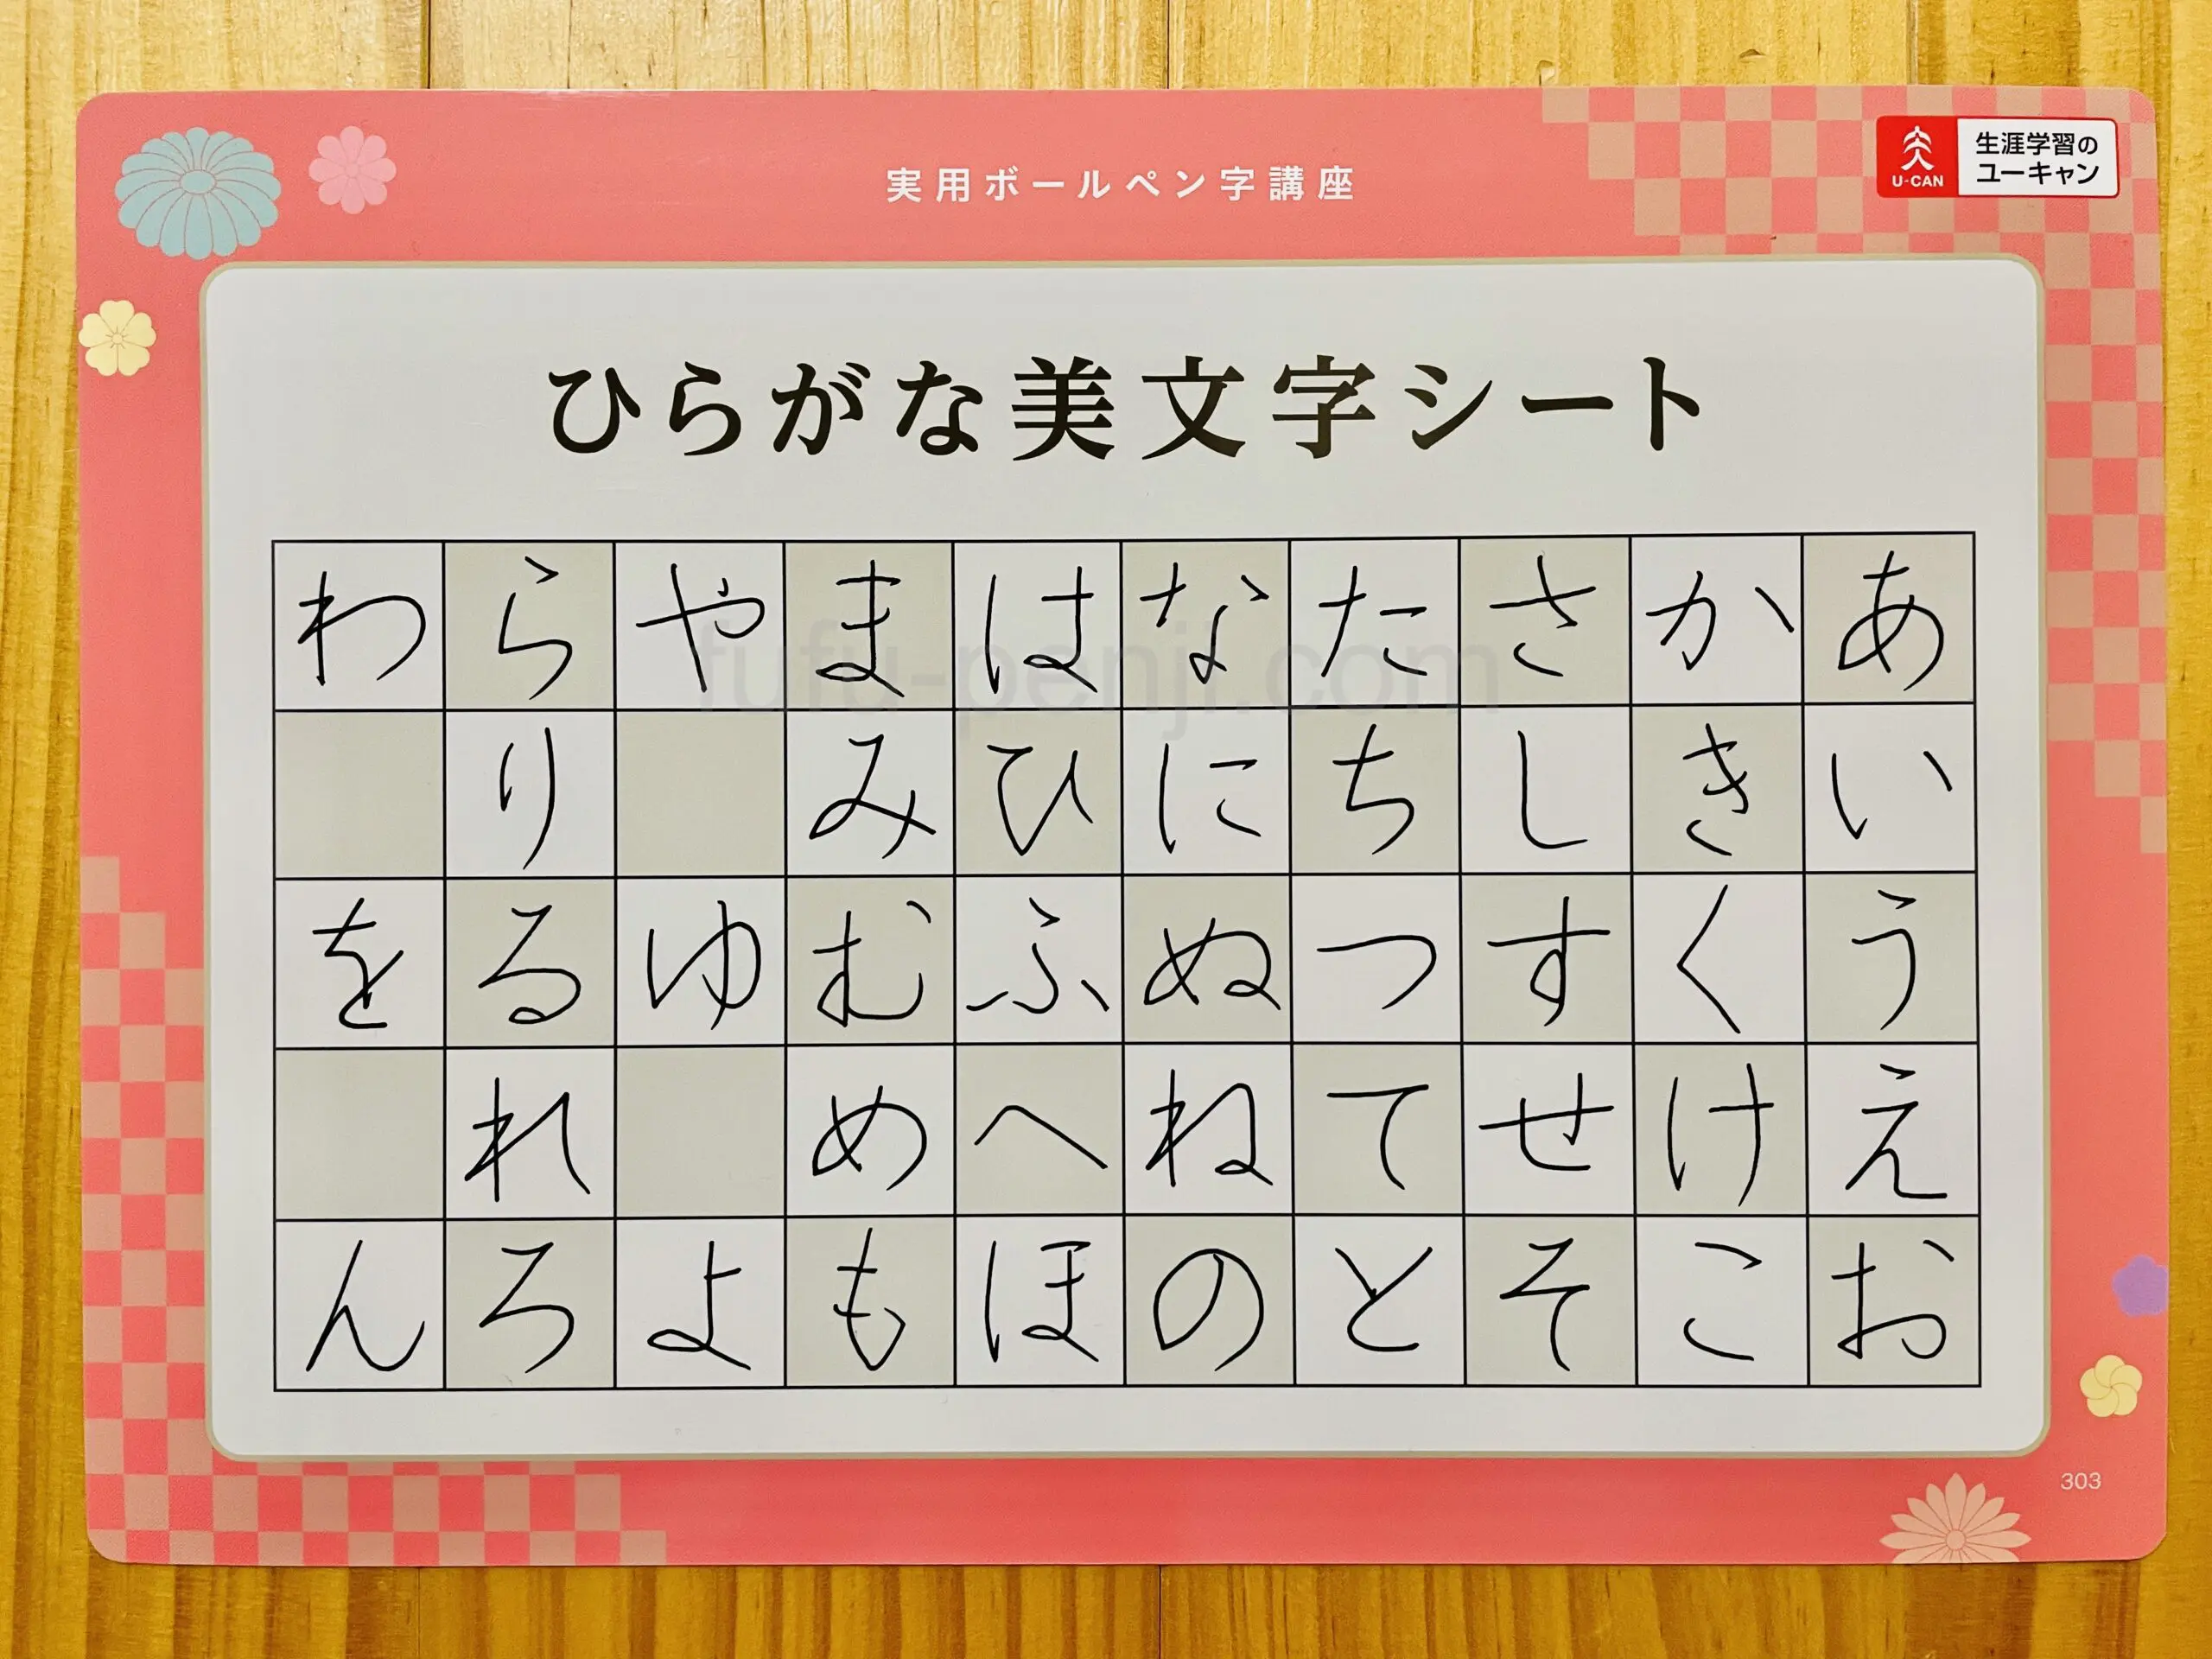 実用ボールペン字講座
U-CAN
生涯学習の
ユーキャン
ひらがな美文字シート
わ ら や ま は な た さ か あ
り み ひ に ち し き い
を る ゆ む ふ ぬ つ す く う
れ め へ ね て せ け え
ん ろ よ も ほ の と そ こ お
fufu-penji.com
303